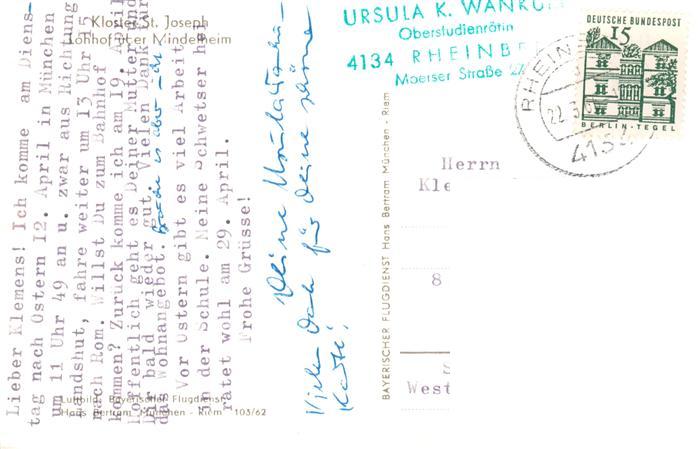 Kloster St. Joseph
Lohhof über Mindelheim
Lieber Klemens! Ich komme am Diens-
tag nach Ostern 12. April in München
um 11 Uhr 49 an u. zwar aus Richtung
Landshut, fahre weiter um 13 Uhr 5
nach Rom. Willst Du zum Bahnhof
kommen? Zurück komme ich am 19. Apr
Hoffentlich geht es Deiner Mutter und
Dir bald wieder gut. Vielen Dank für
das Wohnangebot.
Vor Ostern gibt es viel Arbeit
in der Schule. Meine Schwetser hei-
ratet wohl am 29. April.
Frohe Grüsse!
Deine Ursula
Vielen Dank für Deine schöne
Karte!
Luftbild: Bayerischer Flugdienst
Hans Bertram München - Riem 103/62
BAYERISCHER FLUGDIENST Hans Bertram München - Riem
URSULA K. WANKU
Oberstudienrätin
4134 RHEINBE
Moerser Straße 27
DEUTSCHE BUNDESPOST
15
BERLIN-TEGEL
RHEIN
22.3.
4134
Herrn
Kle
8
West